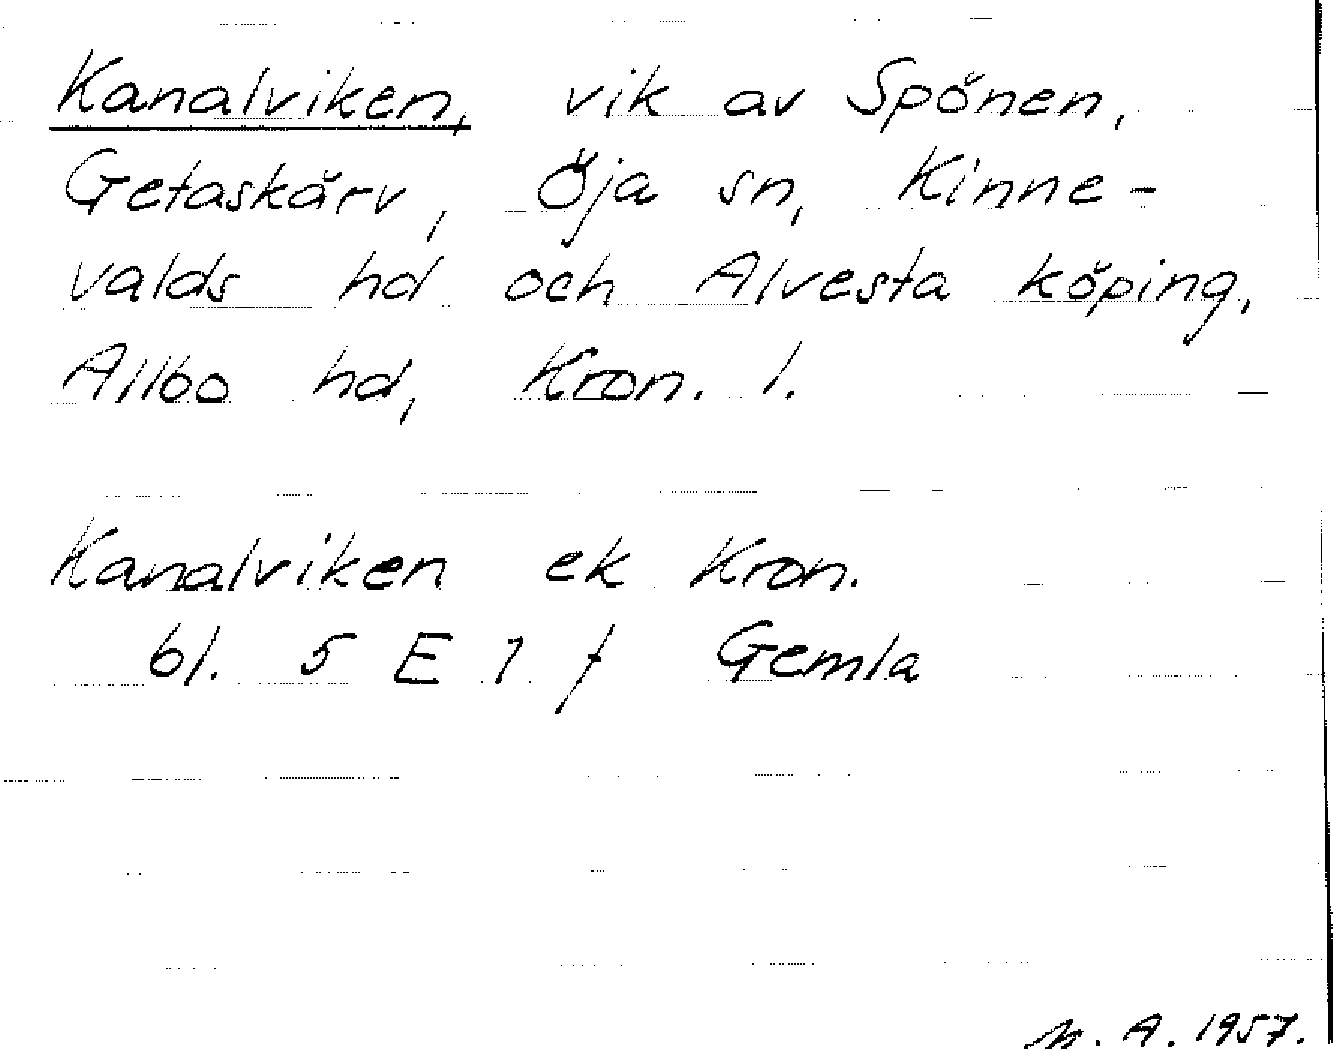 Kanalviken, vik av Spönen,
Getaskärv, Öja sn, Kinne-
valds hd och Alvesta köping,
Allbo hd, Kron. l.
Kanalviken ek Kron.
bl. 5 E 1 f Gemla
M. A. 1957.